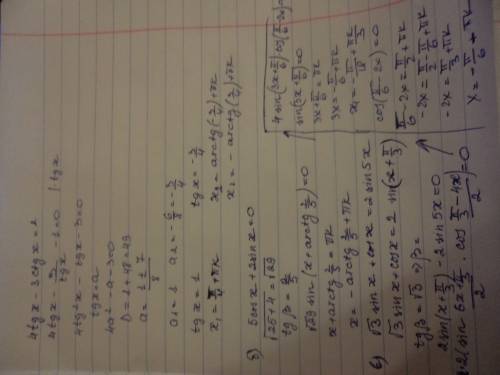 4tgx - 3ctgx = 1
4tgx - 3/tgx - 1 = 0 | tgx
4tg²x - tgx - 3 = 0
tgx = a
4a² - a - 3 = 0
D = 1 + 48 = 49
a = 1 ± 7 / 8
a₁ = 1 a₂ = -6/8 = -3/4
tgx = 1 tgx = -3/4
x₁ = π/4 + πk x₂ = arctg(-3/4) + πk
x₂ = -arctg(3/4) + πk
5cosx + 2sinx = 0
√25+4 = √29
tgβ = 5/2
√29 sin(x + arctg 5/2) = 0
x + arctg 5/2 = πk
x = -arctg 5/2 + πk
6) √3 sinx + cosx = 2sin5x
√3 sinx + cosx = 2 sin(x + π/3)
tgβ = √3 ⇒ β =
2sin(x + π/3) - 2sin5x = 0
cos(π/3 - 4x / 2) = 0
4sin(3x + π/6) cos(π/6 - 2x) = 0
sin(3x + π/6) = 0
3x + π/6 = πk
3x = -π/6 + πk
x₁ = -π/18 + πk/3
cos(π/6 - 2x) = 0
π/6 - 2x = π/2 + πk
-2x = π/2 - π/6 + πk
-2x = π/3 + πk
x = -π/6 + πk